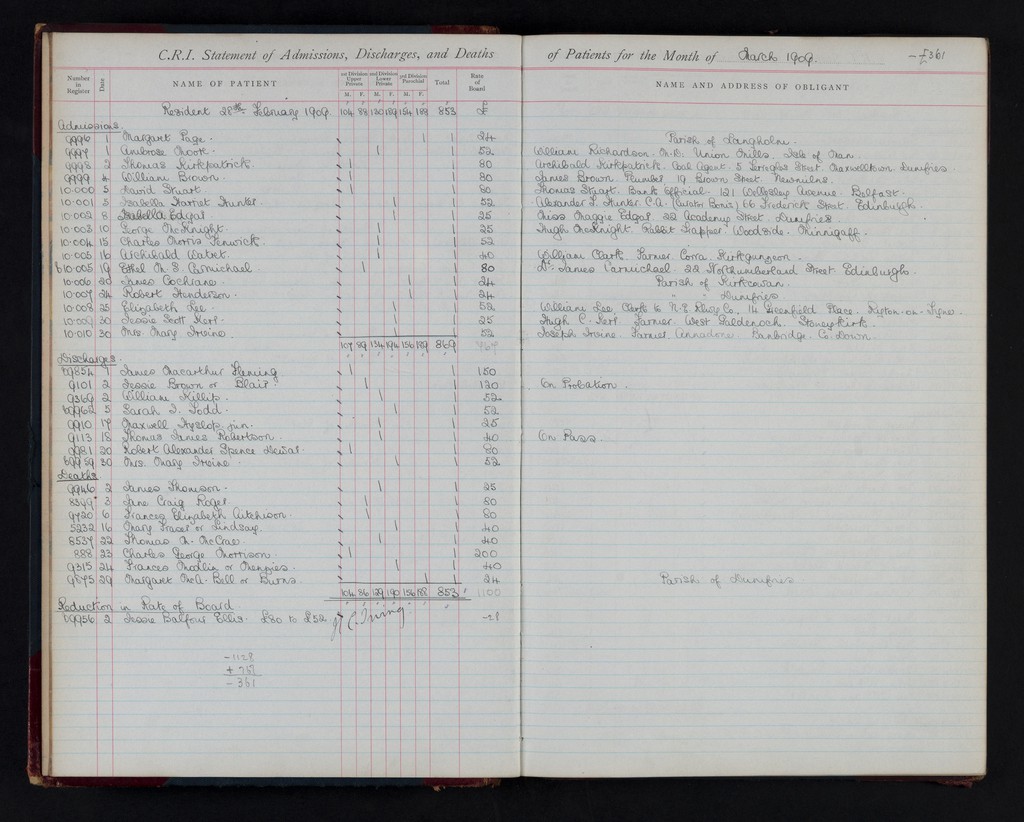 C.R.I. Statement of Admissions, Discharges, and Deaths of Patients for the Month of March 1909. -£361
Number in Register Date NAME OF PATIENT 1st Division Upper Private 2nd Division Lower Private 3rd Division Parochial Total Rate of Board NAME AND ADDRESS OF OBLIGANT
M. F. M. F. M. F.
Resident 28th February 1909. 104 88 130 189 154 188 853 £
Admissions.
9996 1 Margaret Page. 1 24 Parish of Langholm.
9997 1 Ambrose Moore. 1 52 William Richardson. M.B. Union Mills, Isle of Man.
9998 2 Thomas Kirkpatrick. 1 80 Archibald Kirkpatrick. Coal Agent. 5 Street Maxwelltown Dumfries
9999 4 William Brown. 1 80 James Brown. Plumber 19 Brown Street. Newmilns.
10.000 5 David Stuart. 1 80 Thomas Stuart. Bank Official. 121 Wellesley Avenue. Belfast.
10.001 5 Isabella Harriet Hunter. 1 52 Alexander F. Hunter C.A. (Curator Bonis) 66 Frederick Street. Edinburgh.
10.002 8 Isabella Edgar. 1 25 Miss Maggie Edgar 32 Academy Street. Dumfries.
10.003 10 George McKnight. 1 25 Hugh McKnight. Rabbit Trapper. Woodside. Minnigaff.
10.004 15 Charles Morris Fenwick. 1 52
10.005 16 Archibald Watret. 1 40 William Clark Farmer. Corra. Kirkgunzeon.
10.005 19 Ethel M. S. Carmichael 1 80 Dr. James Carmichael. 22 Northumberland Street Edinburgh.
10.006 20 James Cochrane. 1 24 Parish of Kirkcowan.
10.007 24 Robert Henderson. 1 24 " " Dumfries.
10.008 25 Elizabeth Lee. 1 52 William Lee, Clerk to N.E. Rlwy Co, 14 Greenfield Place. Ryton-on-Tyne.
10.009 30 Jessie Scott Kerr. 1 25 Hugh C. Kerr. Farmer. West Galdenoch. Stoneykirk.
10.010 30 Mrs. Mary Irvine. 1 52 Joseph Irvine. Farmer. Annadone. Banbridge. Co. Down.
107 89 134 194 156 189 869 767
Discharges.
9854 1 James Macarthur Fleming 1 150
9101 2 Jessie Brown or Blair. 1 120 On Probation.
9369 2 William Killip. 1 52
9962 5 Sarah J. Todd. 1 52
9910 17 Maxwell Hyslop jun. 1 25
9113 18 Thomas James Robertson. 1 40 On Pass.
9981 20 Robert Alexander Spence Dewar. 1 80
9959 30 Mrs. Mary Irvine. 1 52
Deaths.
9946 2 James Thomson. 1 25
8399 3 Jane Craig Roger. 1 80
9720 6 Frances Elizabeth Aitchison. 1 80
5232 16 Mary Fraser or Lindsay. 1 40
8537 22 Thomas M. McCrae. 1 40
888 23 Charles George Morrison. 1 200
9315 24 Frances Modlin or Menzies. 1 40
9875 29 Margaret McA. Bell or Burns 1 24 Parish of Dumfries
104 86 129 190 156 188 853 1100
Reduction in Rate of Board
9956 2 Jessie Balfour Ellis. £80 to £52. J C. Irving. -28
-1128
+ 767
- 361